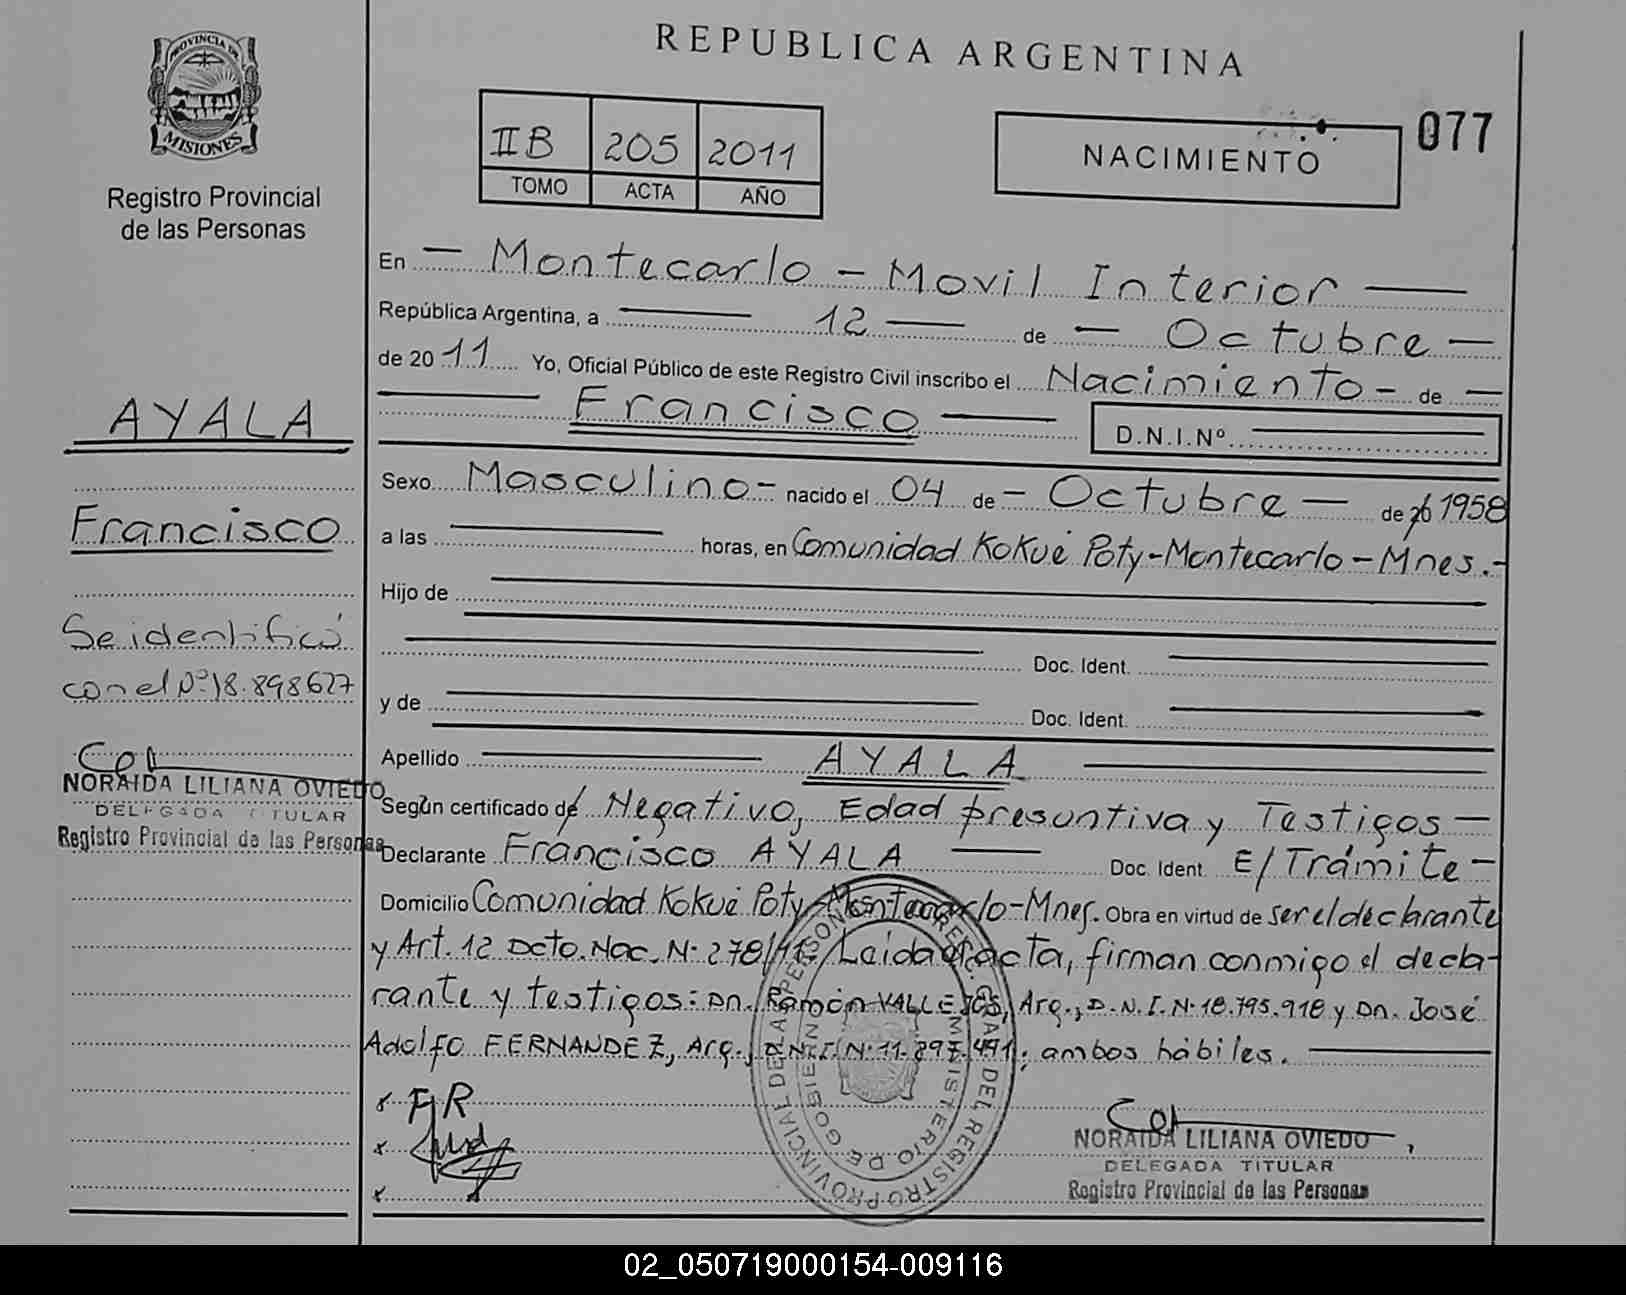 PROVINCIA DE
MISIONES
Registro Provincial
de las Personas
AYALA
Francisco
Se identificó
con el Nº 18.898627
NORAIDA LILIANA OVIEDO
DELEGADA TITULAR
Registro Provincial de las Personas
REPUBLICA ARGENTINA
IIB 205 2011
TOMO ACTA AÑO
NACIMIENTO
077
En — Montecarlo - Movil Interior —
República Argentina, a — 12 — de — Octubre —
de 2011 Yo, Oficial Público de este Registro Civil inscribo el Nacimiento - de —
— Francisco — D.N.I.Nº —
Sexo Masculino - nacido el 04 de - Octubre — de 20 1958
a las — horas, en Comunidad Kokué Poty - Montecarlo - Mnes. -
Hijo de —
— Doc. Ident. —
y de — Doc. Ident. —
Apellido — AYALA —
Según certificado de / Negativo, Edad presuntiva y Testigos —
Declarante Francisco AYALA — Doc. Ident. E/Trámite -
Domicilio Comunidad Kokué Poty - Montecarlo - Mnes. Obra en virtud de ser el declarante
y Art. 12 Dcto. Nac. Nº 278/11. Leída el acta, firman conmigo el decla-
rante y testigos: Dn. Ramón VALLEJOS, Arg., D.N.I. Nº 18.795.918 y Dn. José
Adolfo FERNANDEZ, Arg., D.N.I. Nº 11.297.491; ambos hábiles. —
x FR
x
x
NORAIDA LILIANA OVIEDO
DELEGADA TITULAR
Registro Provincial de las Personas
DIREC. GRAL DEL REGISTRO PROVINCIAL DE LAS PERSONAS
MINISTERIO DE GOBIERNO
02_050719000154-009116